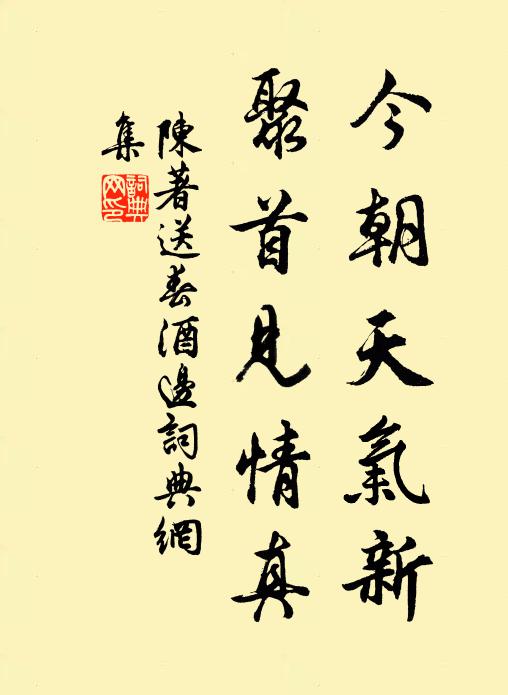 今朝天氣新
聚首見情真
陳著送春酒邊詞典網
集
詞典
网印